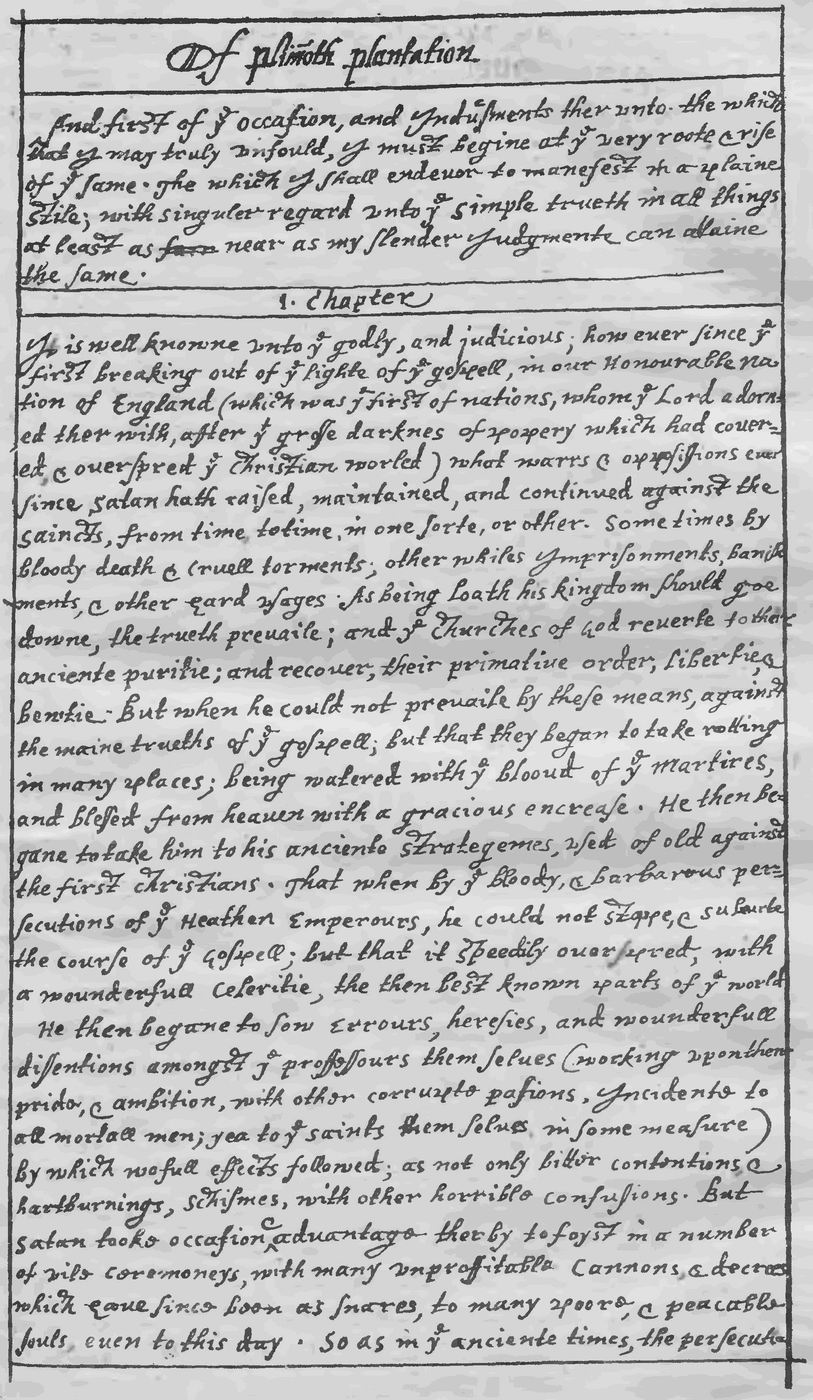 Of plim̃oth plantation
And first of yᵉ occasion, and Indusments ther vnto. the which
that I may truly vnfould, I must begine at yᵉ very roote & rise
of yᵉ same. The which I shall endevor to manefest in a plaine
stile; with singuler regard vnto yᵉ simple trueth in all things
at least as near as my slender Judgmente can attaine
the same.
1. Chapter
It is well knowne vnto yᵉ godly, and judicious; how ever since yᵉ
first breaking out of yᵉ lighte of yᵉ gospell, in our Honourable Na-
tion of England (which was yᵉ first of nations, whom yᵉ Lord adorn-
ed ther with, after yᵉ grosse darknes of popery which had cover=
ed & overspred yᵉ christian worled) what warrs & oppossisions ever
since Satan hath raised, maintained, and continued against the
saincts, from time, to time, in one sorte, or other. Some times by
bloody death & cruell torments; other whiles Imprisonments, banish-
ments, & other hard vsages. As being loath his kingdom should goe
downe, the trueth prevaile; and yᵉ Churches of God reverte to ther
anciente puritie; and recover, their primative order, libertie, &
bewtie. But when he could not prevaile by these means, against
the maine trueths of yᵉ gospell; but that they began to take rotting
in many places; being watered with yᵉ blooud of yᵉ martires,
and blessed from heaven with a gracious encrease. He then be=
gane to take him to his anciente strategemes, vsed of old against
the first christians. That when by yᵉ bloody, & barbarous per=
secutions of yᵉ Heathen Emperours, he could not stoppe, & subuerte
the course of yᵉ Gospell; but that it speedily overspred, with
a wounderfull Celeritie, the then best known parts of yᵉ world
He then begane to sow Errours, heresies, and wounderfull
dissentions amongst yᵉ proffessours them selves (working vpon then
pride, & ambition, with other corrupte passions, Incidente to
all mortall men; yea to yᵉ saints them selves in some measure)
by which wofull effects followed; as not only bitter contentions &
hartburnings, schismes, with other horrible confusions. But
Satan tooke occasion & advantage therby to foyst in a number
of vile ceremoneys, with many vnproffitable Cannons, & decrees
which have since been as snares, to many poore, & peacable
souls, even to this day. So as in yᵉ anciente times, the persecutio